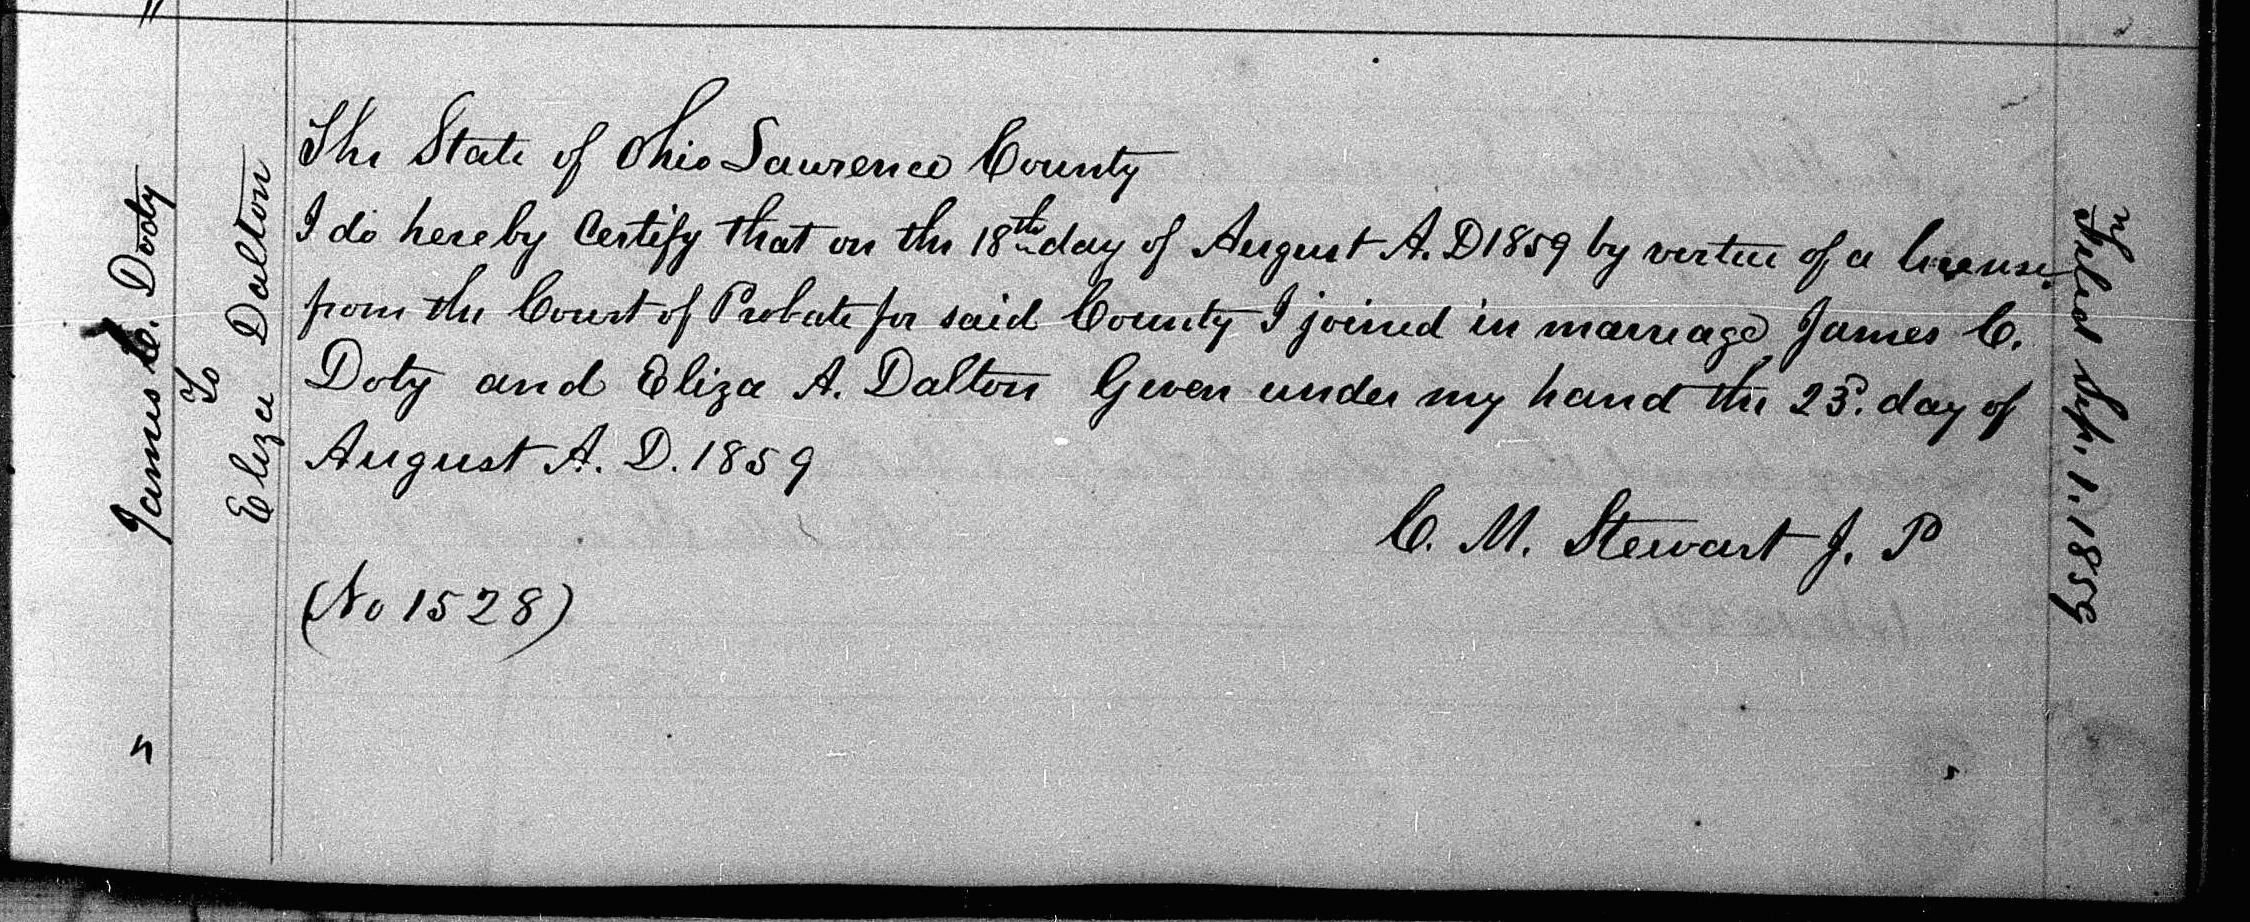 James C. Doty
To
Eliza Dalton
The State of Ohio Lawrence County
I do hereby Certify that on the 18th day of August A. D 1859 by virtue of a license
from the Court of Probate for said County I joined in marriage James C.
Doty and Eliza A. Dalton Given under my hand the 23d. day of
August A. D. 1859
C. M. Stewart J. P
(No 1528)
Filed Sep. 1. 1859